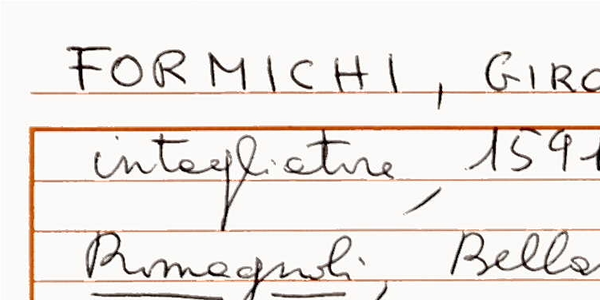 FORMICHI, GIRO
intagliatore, 1591
Romagnoli, Bella